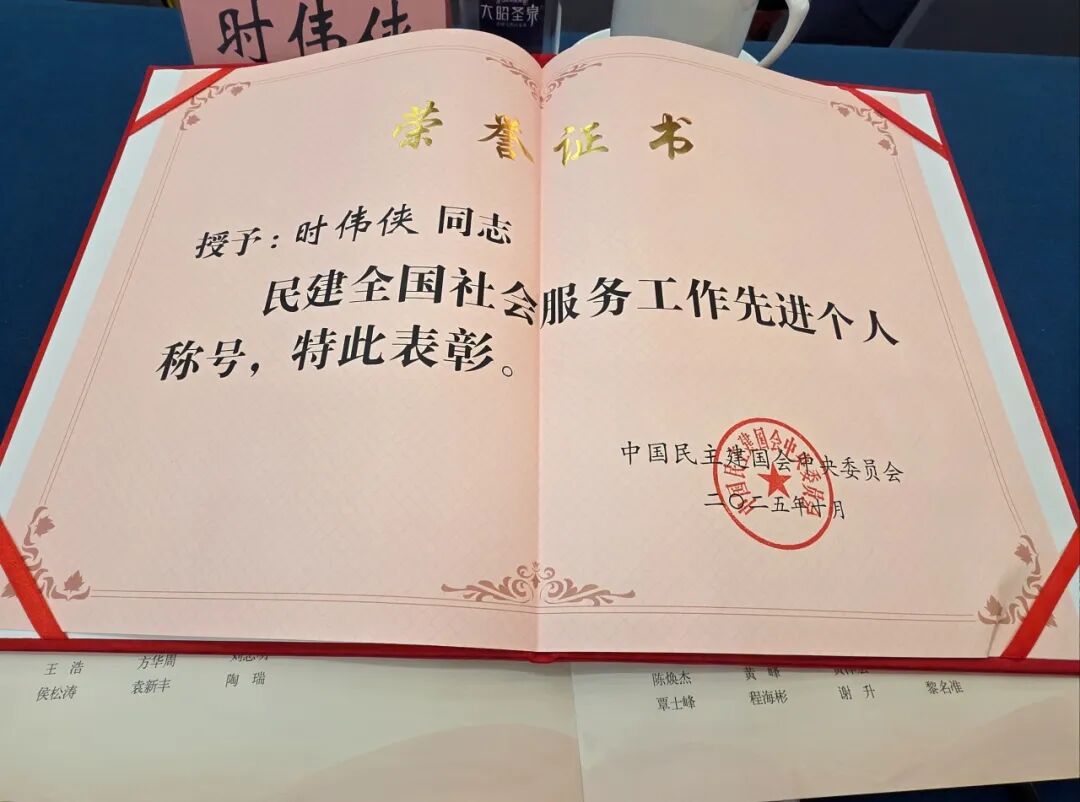 时伟侠
大昭圣泉
荣誉证书
授予：时伟侠 同志
民建全国社会服务工作先进个人
称号，特此表彰。
中国民主建国会中央委员会
二〇二五年十月
中国民主建国会中央委员会
王 浩 方华周
侯松涛 袁新丰 陶 瑞
陈焕杰 黄 峰
覃士峰 程海彬 谢 升 黎名准